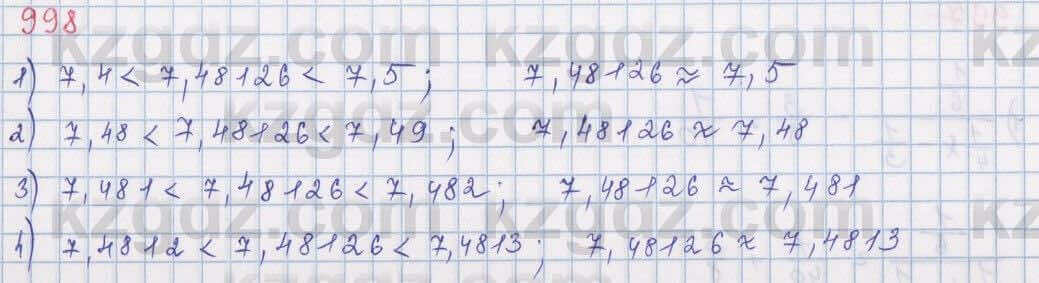 998
kzgdz.com kzgdz.com
1) 7,4 < 7,48126 < 7,5; 7,48126 ≈ 7,5
kzgdz.com
2) 7,48 < 7,48126 < 7,49; 7,48126 ≈ 7,48
3) 7,481 < 7,48126 < 7,482; 7,48126 ≈ 7,481
kzgdz.com kzgdz.com
4) 7,4812 < 7,48126 < 7,4813; 7,48126 ≈ 7,4813